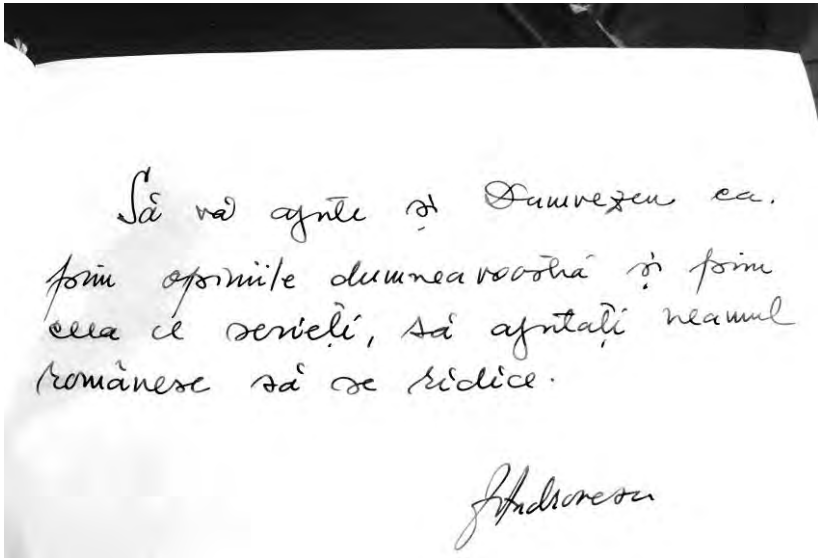 Să vă ajute și Dumnezeu ca,
prin opiniile dumneavoastră și prin
ceea ce scrieți, să ajutați neamul
românesc să se ridice.
Andronescu